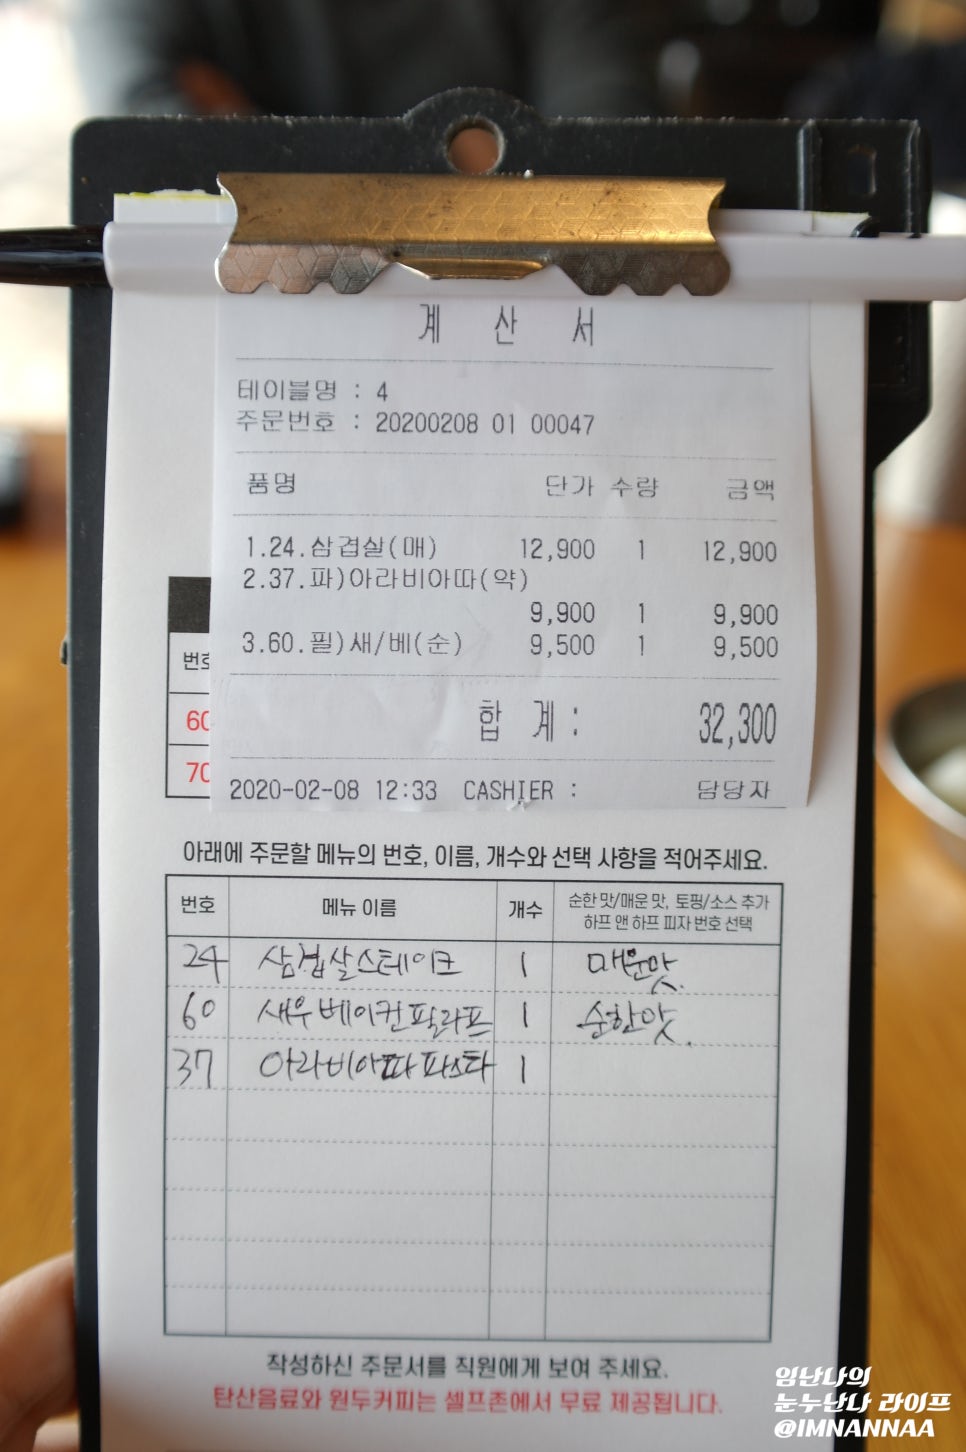 계 산 서
테이블명 : 4
주문번호 : 20200208 01 00047
품명 단가 수량 금액
1.24.삼겹살(매) 12,900 1 12,900
2.37.파)아라비아따(약)
9,900 1 9,900
3.60.필)새/베(순) 9,500 1 9,500
합 계 : 32,300
2020-02-08 12:33 CASHIER : 담당자
번호
60
70
아래에 주문할 메뉴의 번호, 이름, 개수와 선택 사항을 적어주세요.
번호 메뉴 이름 개수 순한 맛/매운 맛, 토핑/소스 추가
하프 앤 하프 피자 번호 선택
24 삼겹살스테이크 1 매운맛.
60 새우베이컨필라프 1 순한맛.
37 아라비아따파스타 1
작성하신 주문서를 직원에게 보여 주세요.
탄산음료와 원두커피는 셀프존에서 무료 제공됩니다.
임난나의
눈누난나 라이프
@IMNANNAA